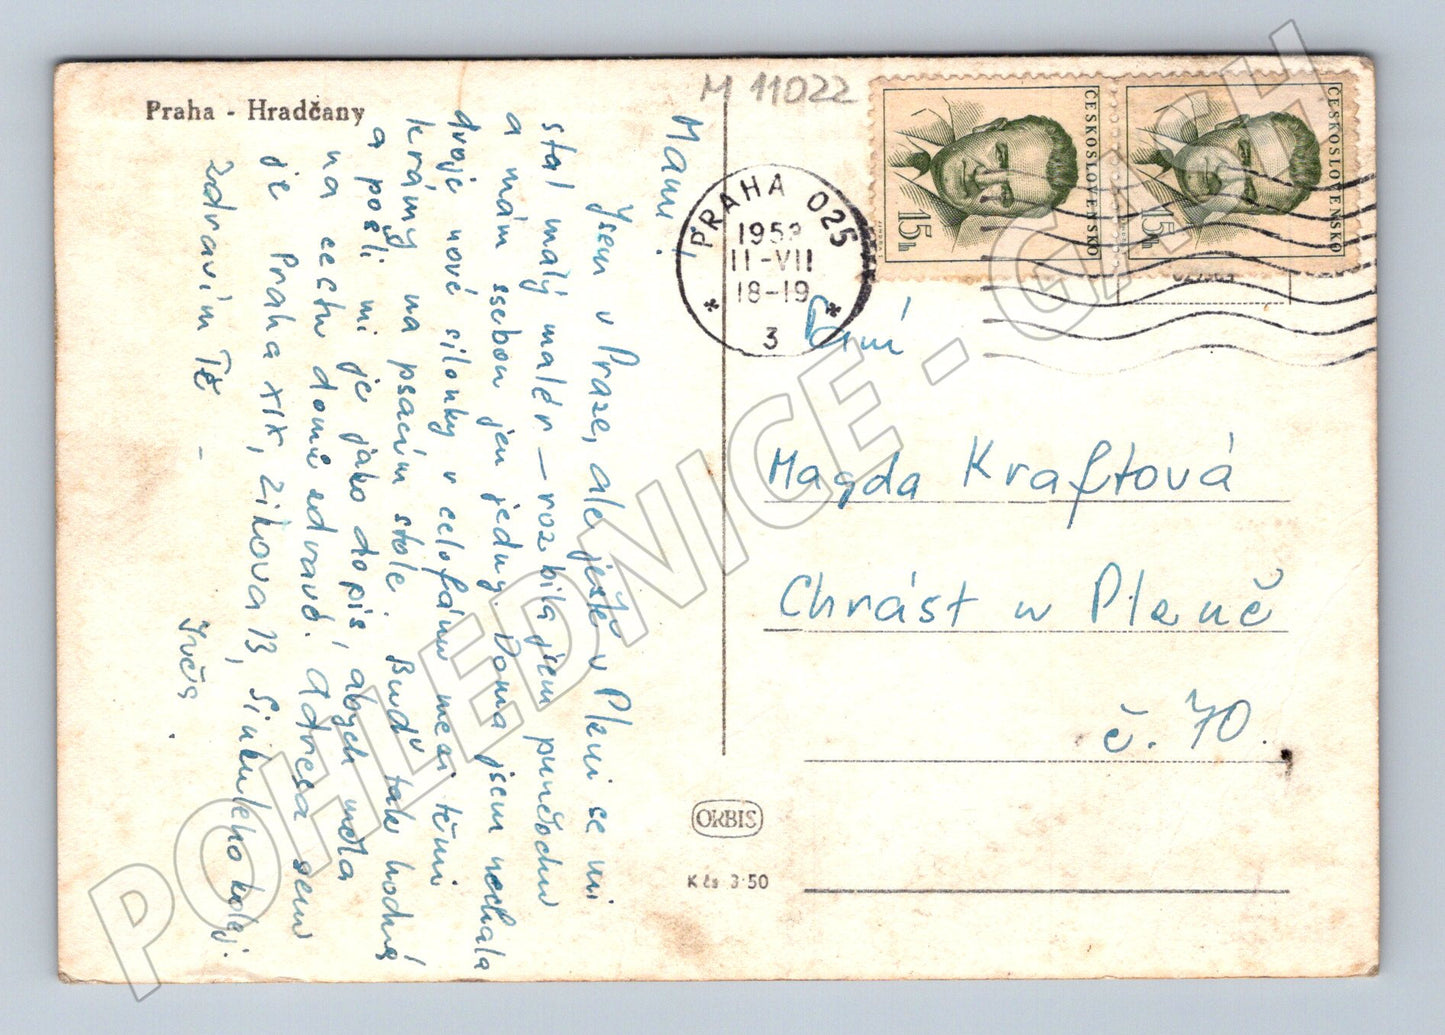 Praha - Hradčany
M 11022
Mami,
Jsem v Praze, ale ještě v Plzni se mi
stal malý malér – rozbila jsem punčochu
a mám ssebou jen jedny. Doma jsem nechala
dvoje nové silonky v celofánu mezi těmi
krámy na psacím stole. Buď tak hodná
a pošli mi je jako dopis, abych měla
na cestu domů zdravé. Adresa sem
je Praha XIX, Zikova 13, Sinkuleho kolej.
Zdravím Tě -
Ivča.
PRAHA 025
1958
11-VII
18-19
3
ČESKOSLOVENSKO
15h
ČESKOSLOVENSKO
15h
Paní
Magda Kraftová
Chrást u Plzně
č. 70.
ORBIS
Kčs 3·50
POHLEDNICE - GASH